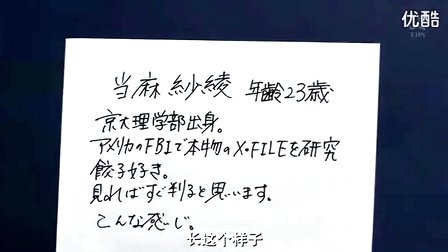 优酷
TBS
当麻 紗綾 年齢23歳
京大理学部出身。
アメリカのFBIで本物のX・FILEを研究
餃子好き。
見ればすぐ判ると思います。
こんな感じ。
长这个样子